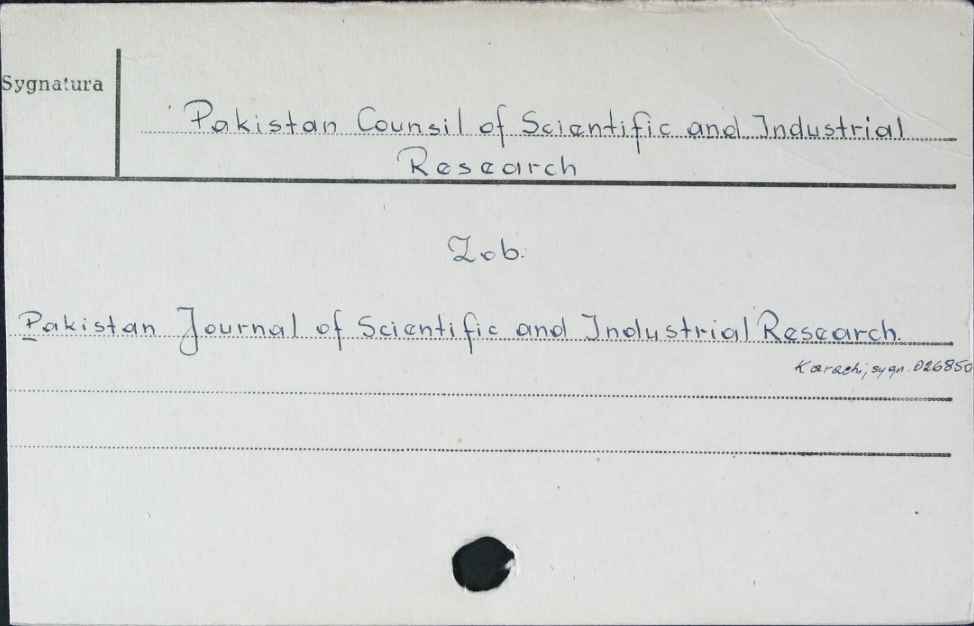 Sygnatura
Pakistan Counsil of Scientific and Industrial
Research
Zob.
Pakistan Journal of Scientific and Industrial Research.
Karachi, sygn. 026850